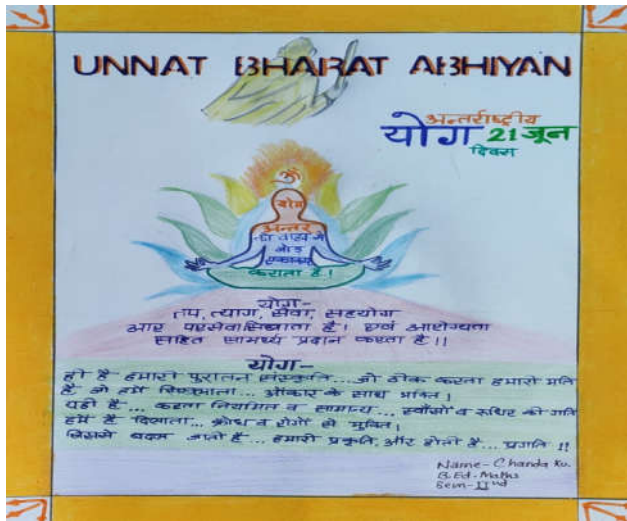 UNNAT BHARAT ABHIYAN
अन्तर्राष्ट्रीय
योग 21 जून
दिवस
ॐ
योग
अन्तर
को बाह्य से
जोड़
एकाकार
कराता है।
योग-
तप, त्याग, सेवा, सहयोग
और परसेवा सिखाता है। एवं आरोग्यता
सहित सामर्थ्य प्रदान करता है।।
योग-
ही है हमारी पुरातन संस्कृति... जो ठीक करता हमारी मति
है जो हमें सिखलाता... ओंकार के साथ भक्ति।
यही है... करता नियमित व सामान्य... स्वाँसों व रूधिर की गति
हमें है दिलाता... क्रोध व रोगों से मुक्ति।
जिससे बदल जाती है... हमारी प्रकृति, और होती है... प्रगति !!
Name- Chanda Ku.
B.Ed- Maths
Sem- IInd